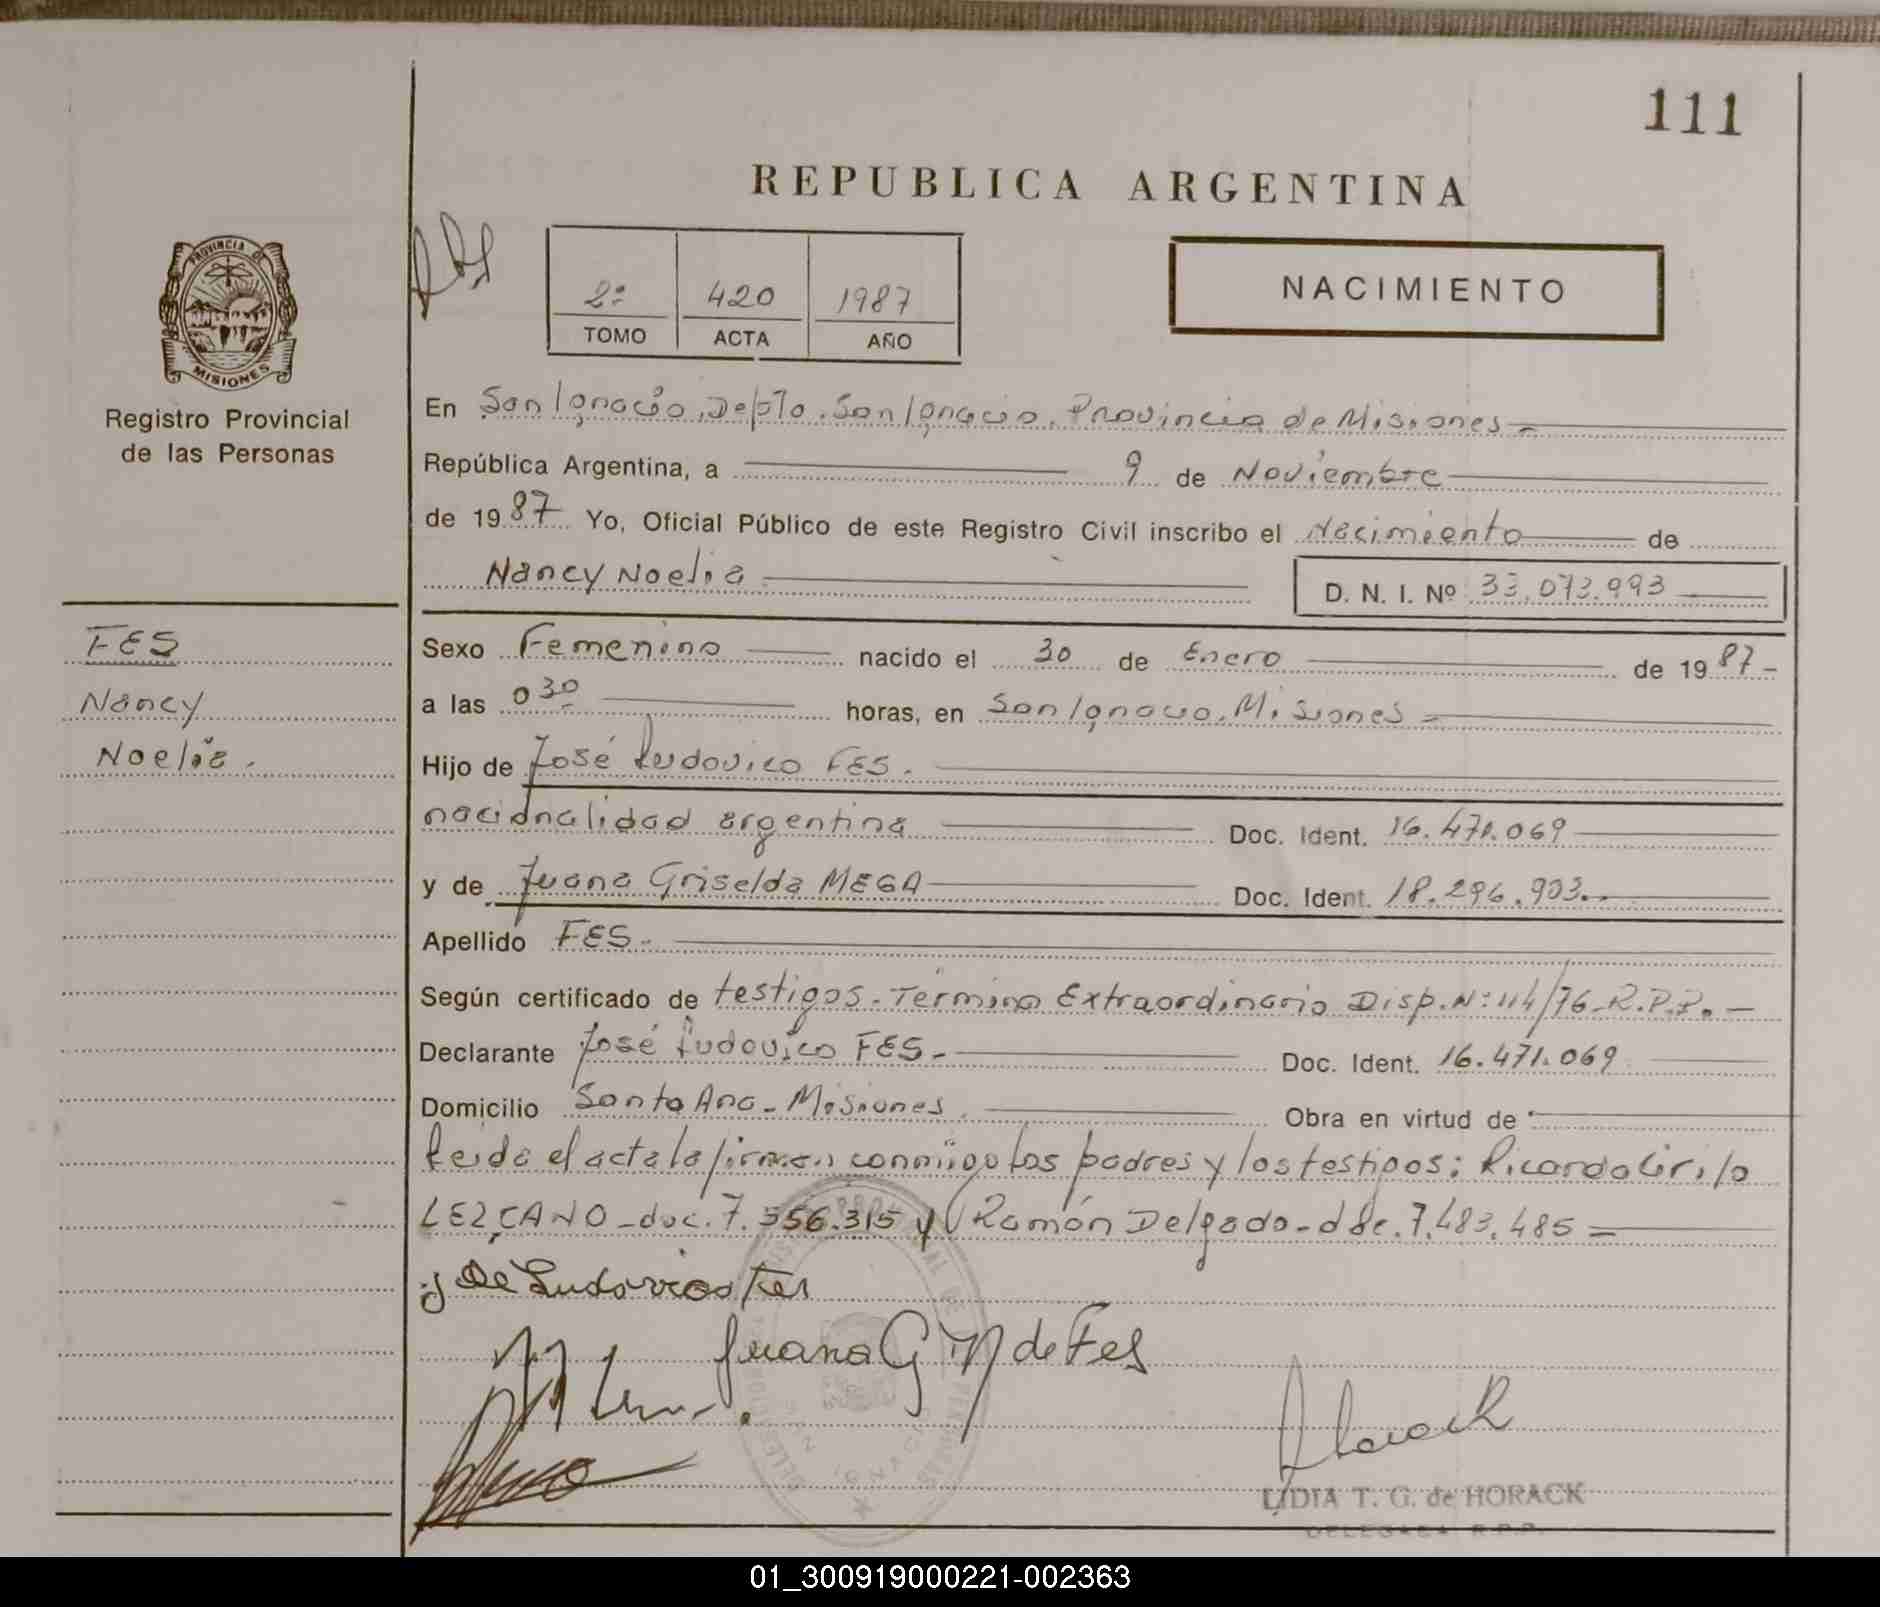 111
REPUBLICA ARGENTINA
PROVINCIA DE
MISIONES
Registro Provincial
de las Personas
2º 420 1987
TOMO ACTA AÑO
NACIMIENTO
En San Ignacio, Depto. San Ignacio, Provincia de Misiones
República Argentina, a 9 de Noviembre
de 1987 Yo, Oficial Público de este Registro Civil inscribo el Nacimiento de
Nancy Noelia D. N. I. Nº 33.073.993
FES
Nancy
Noelia.
Sexo Femenino nacido el 30 de Enero de 1987-
a las 0 30 horas, en San Ignacio. Misiones
Hijo de José Ludovico FES.
nacionalidad argentina Doc. Ident. 16.471.069
y de Juana Griselda MEGA Doc. Ident. 18.296.903.
Apellido FES.
Según certificado de testigos. Término Extraordinario Disp. Nº 114/76 R.P.P.
Declarante José Ludovico FES. Doc. Ident. 16.471.069
Domicilio Santa Ana - Misiones. Obra en virtud de
Leida el acta la firman conmigo los padres y los testigos: Ricardo Cirilo
LEZCANO - doc. 7.556.315 y Ramón Delgado - doc. 7.483.485
José Ludovico Fes
Juana G M de Fes
Horack
LIDIA T. G. de HORACK
DELEGADA R.P.P.
01_300919000221-002363